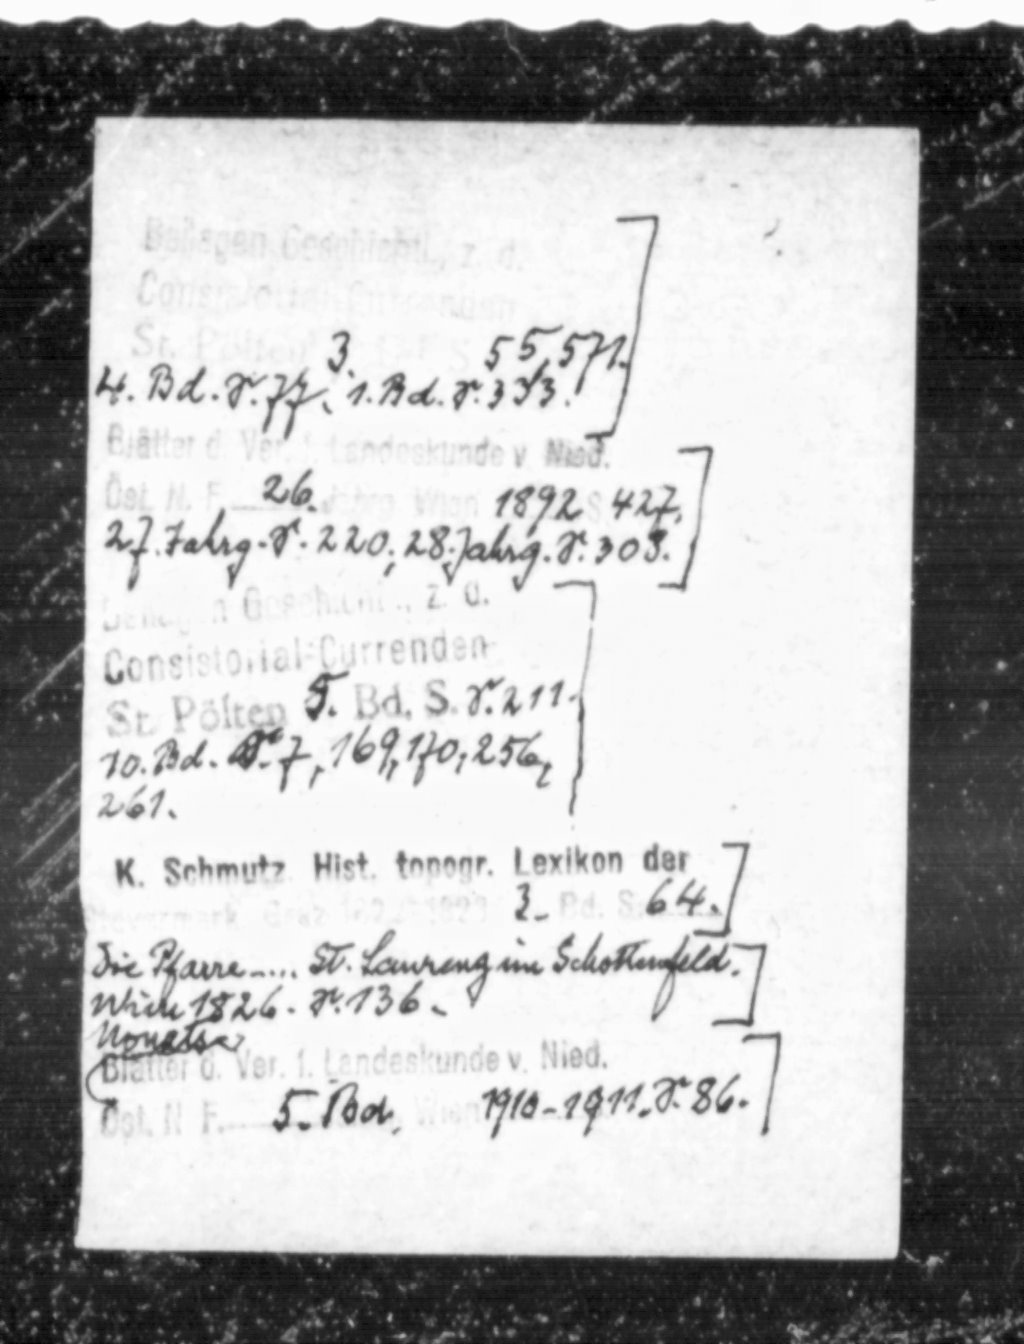 Beilagen Geschichtl., z. d.
Consistorial-Currenden
St. Pölten 3. 55, 571.
4. Bd. S. 77, 1. Bd. S. 333.
Blätter d. Ver. f. Landeskunde v. Nied.
Öst. N. F. 26. Jahrg. Wien 1892 S. 427,
27. Jahrg. S. 220, 28. Jahrg. S. 303.
Beilagen Geschichtl., z. d.
Consistorial-Currenden
St. Pölten 5. Bd. S. S. 211.
10. Bd. S. 7, 169, 170, 256,
261.
K. Schmutz Hist. topogr. Lexikon der
Steyermark, Graz 3. Bd. S. 64.
Die Pfarre..... St. Laurenz im Schottenfeld.
Wien 1826. S. 136.
Monats
Blätter d. Ver. f. Landeskunde v. Nied.
Öst. N. F. 5. Bd., Wien 1910-1911. S. 86.